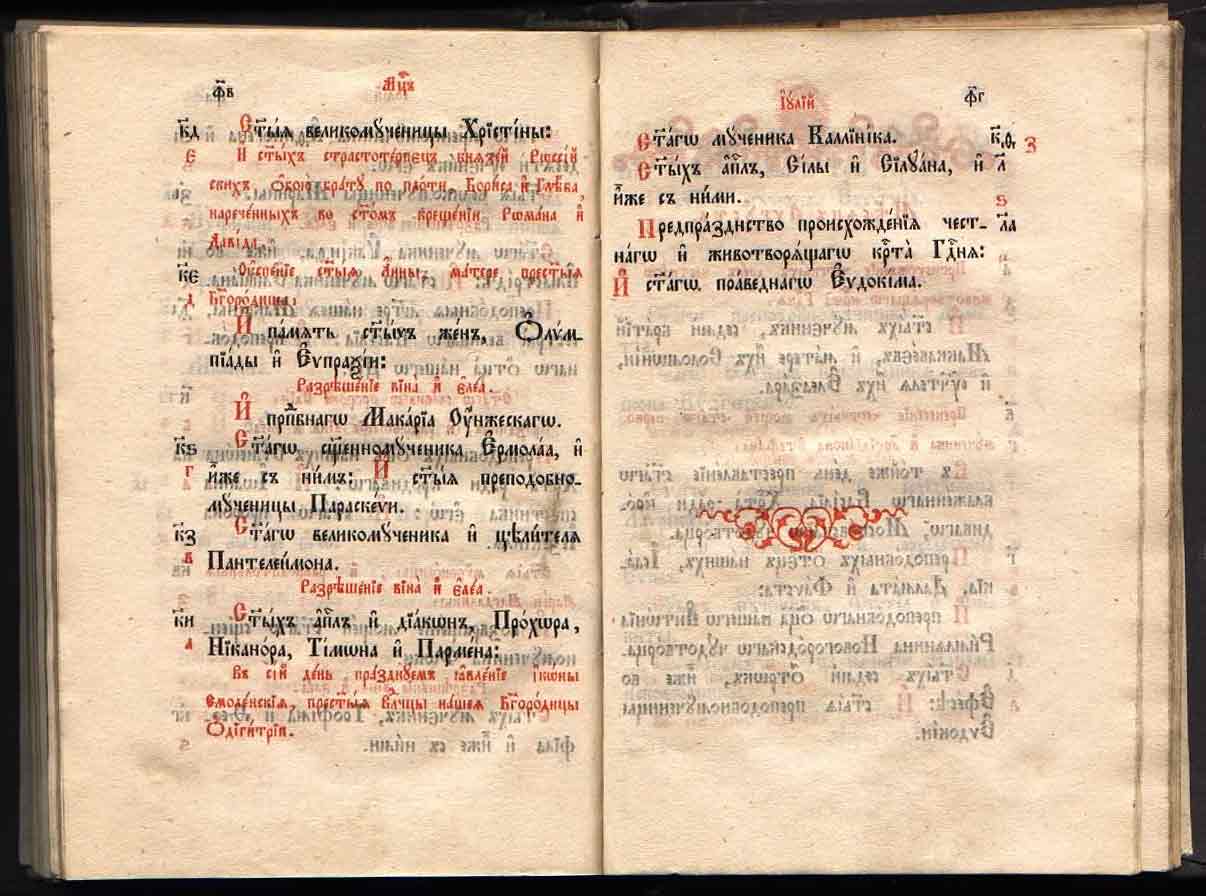 ф҃в
Мц҃ъ
к҃д
Ст҃ы́ѧ великомꙋ́ченицы Хрїсті́ны:
є
И҆ ст҃ы́хъ страстоте́рпєцъ кнѧзе́й Рѡссі́й
скихъ, ѻ҆бою̀ бра́тꙋ по пло́ти, Бори́са и҆ Глѣ́ба
нарече́нныхъ во ст҃о́мъ креще́нїи Рѡма́на и҆
Даві́да.
к҃є
Оу҆спе́нїе ст҃ы́ѧ А҆́нны, ма́тере прест҃ы́ѧ
д
Бг҃оро́дицы:
И҆ па́мѧть ст҃ы́хъ же́нъ, Ѻ҆лѷм-
пїа́ды и҆ Є҆ѵпраѯі́и:
Разрѣше́нїе вїна̀ и҆ є҆ле́а.
И҆ прп҃бнагѡ Мака́рїа Оу҆́нжескагѡ.
к҃ѕ
Ст҃а́гѡ сщ҃енномꙋ́ченика Є҆рмола́а, и҆
г
и҆̀же съ ни́мъ: И҆ ст҃ы́ѧ преподобно-
мꙋ́ченицы Параскеѵ́и.
к҃з
Ст҃а́гѡ великомꙋ́ченика и҆ цѣли́телѧ
в
Пантелеи́мона.
Разрѣше́нїе вїна̀ и҆ є҆ле́а.
к҃и
Ст҃ы́хъ а҆п҃лъ и҆ дїа́кѡнъ, Про́хѡра,
а
Нїкано́ра, Ті́мѡна и҆ Парме́на:
Въ сі́й де́нь, пра́зднꙋемъ ꙗ҆вле́нїе і҆кѡ́ны
Смоле́нскїѧ, прест҃ы́ѧ Влⷣчцы на́шеѧ Бг҃оро́дицы
Ѻ҆диги́трїи.
І҆ꙋ́лїй
ф҃г
Ст҃а́гѡ мꙋ́ченика Каллїні́ка.
к҃ѳ
з
Ст҃ы́хъ а҆п҃лъ, Сі́лы и҆ Сїлꙋа́на, и҆
л҃
и҆̀же съ ни́ми.
ѕ
Предпра́зднство происхожде́нїѧ чест-
л҃а
на́гѡ и҆ животворѧ́щагѡ крⷭ҇та̀ Гдⷭ҇нѧ:
И҆ ст҃а́гѡ пра́веднагѡ Є҆ѵдокі́ма.